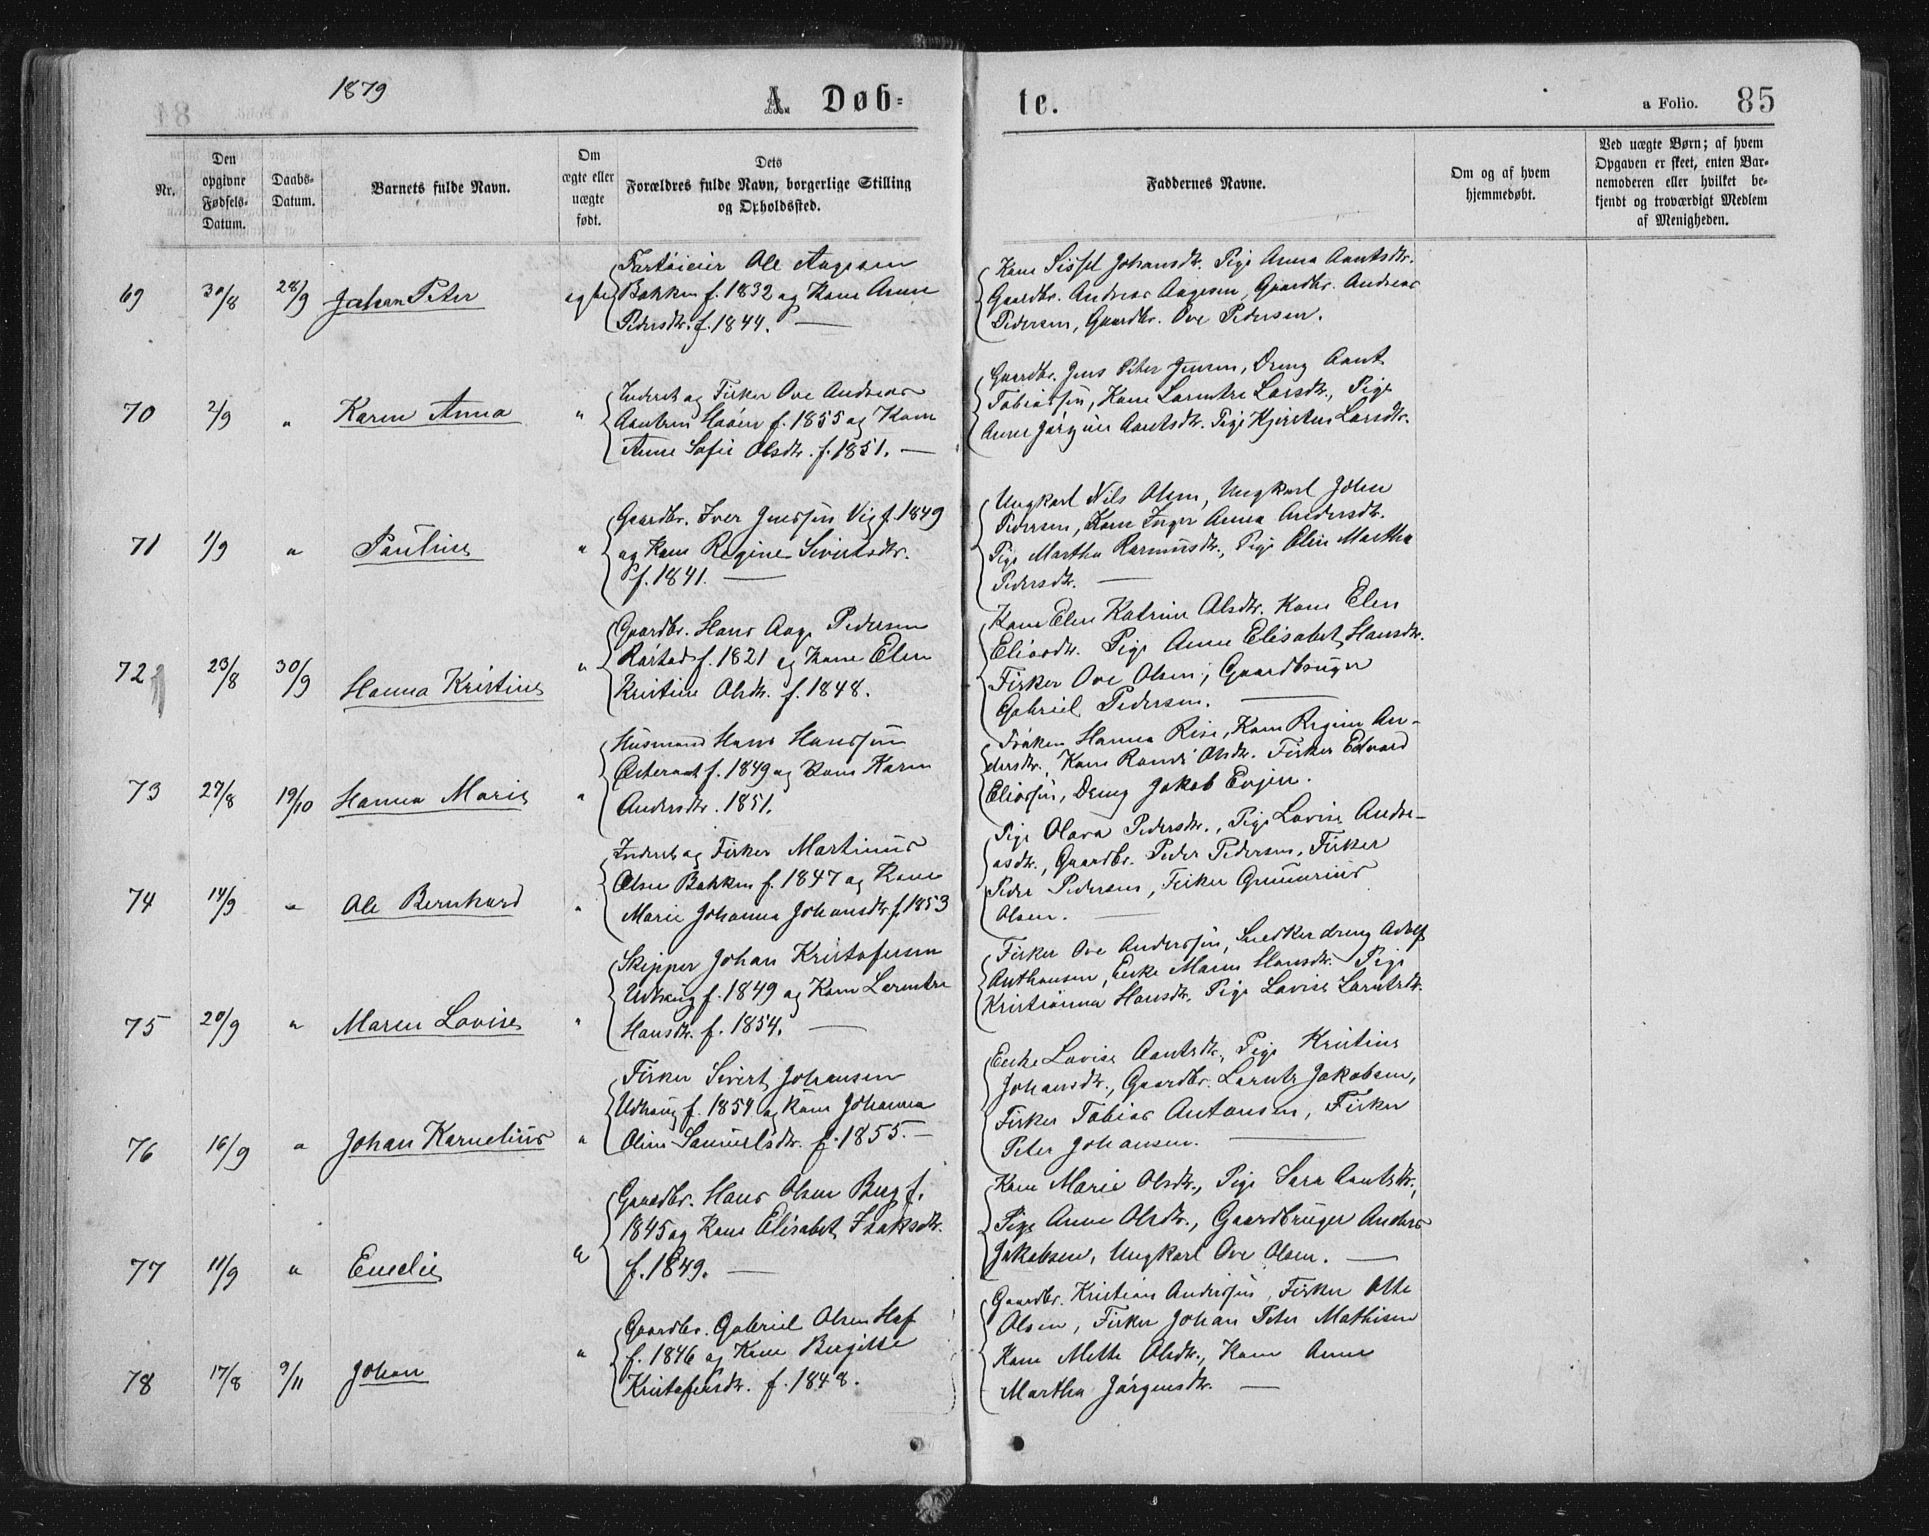 1879
A. Døb=
te.
a Folio. 85
Nr.
Den
opgivne
Fødsels-
Datum.
Daabs-
Datum.
Barnets fulde Navn.
Om
ægte eller
uægte
født.
Dets
Forældres fulde Navn, borgerlige Stilling
og Opholdssted.
Faddernes Navne.
Om og af hvem
hjemmedøbt.
Ved uægte Børn; af hvem
Opgaven er skeet, enten Bar-
nemoderen eller hvilket be-
kjendt og troværdigt Medlem
af Menigheden.
69 30/8 28/9 Johan Peter ægte
Fartøieier Ole Aagesen
Bakken f. 1832 og Kone Anne
Pedersdtr. f. 1844. —
Kone Sissel Johansdtr. Pige Anna Aantsdtr.
Gaardbr. Andreas Aagesen, Gaardbr. Andreas
Pedersen, Gaardbr. Ove Pedersen.
70 2/9 " Karen Anna "
Inderst og Fisker Ove Andreas
Aantsen f. 1855 og Kone
Anne Sofie Olsdtr. f. 1851. —
Gaardbr. Jens Peter Jensen, Dreng Aant
Tobiassen, Kone Larntse Larsdtr., Pige
Anne Jørgine Aantsdtr. Pige Kjerstine Larsdtr.
71 1/9 " Pauline "
Gaardbr. Iver Jenssen Vig f. 1849
og Kone Regine Sivertsdtr.
f. 1841. —
Ungkarl Nils Olsen, Ungkarl Johan
Pedersen, Kone Inger Anna Andersdtr.
Pige Martha Rasmusdtr., Pige Elen Martha
Pedersdtr. —
72 23/8 30/9 Hanna Kristine "
Gaardbr. Hans Aage Pedersen
Røstad f. 1821 og Kone Elen
Kristine Olsdtr. f. 1848.
Kone Elen Katrine Olsdtr. Kone Elen
Eliasdtr. Pige Anne Elisabet Hansdtr.
Fisker Ove Olsen, Gaardbruger
Gabriel Pedersen. —
73 27/8 19/10 Hanna Marie "
Husmand Hans Hanssen
Østeraat f. 1849 og Kone Karen
Andersdtr. 1851.
Frøken Hanna Rise, Kone Regine An-
dersdtr., Kone Randi Olsdtr. Fisker Edvard
Eliassen, Dreng Jakob Evjen.
74 14/9 " Ole Bernhard "
Inderst og Fisker Martinus
Olsen Bakken f. 1847 og Kone
Marie Johanna Johansdtr. f. 1853
Pige Olava Pedersdtr., Pige Lovise Andre-
asdtr., Gaardbr. Peder Pedersen, Fisker
Peder Pedersen, Fisker Gunnerius
Olsen. —
75 20/9 " Maren Lovise "
Skipper Johan Kristofersen
Udhaug f. 1849 og Kone Larntse
Hansdtr. f. 1854. —
Fisker Ove Anderssen, Snedkerdreng Adolf
Anthonsen, Enke Maren Hansdtr. Pige
Kristianna Hansdtr. Pige Lovise Larntsdtr.
76 16/9 " Johan Kornelius "
Fisker Sivert Johansen
Udhaug f. 1854 og Kone Johanna
Oline Samuelsdtr. f. 1855. —
Enke Lovise Aantsdtr., Pige Kristine
Johansdtr., Gaardbr. Larnts Jakobsen,
Fisker Tobias Antonsen, Fisker
Peter Johansen. —
77 11/9 " Emelie "
Gaardbr. Hans Olsen Berg f.
1845 og Kone Elisabet Isaksdtr.
f. 1849. —
Kone Marie Olsdtr., Pige Sara Aantsdtr.,
Pige Anne Olsdtr., Gaardbruger Anders
Jakobsen, Ungkarl Ove Olsen. —
78 17/8 9/11 Johan "
Gaardbr. Gabriel Olsen Hof
f. 1846 og Kone Bergitte
Kristofersdtr. f. 1848.
Gaardbr. Kristian Anderssen, Fisker Otte
Olsen, Fisker Johan Peter Mathisen
Kone Mette Olsdtr., Kone Anne
Martha Jørgensdtr. —